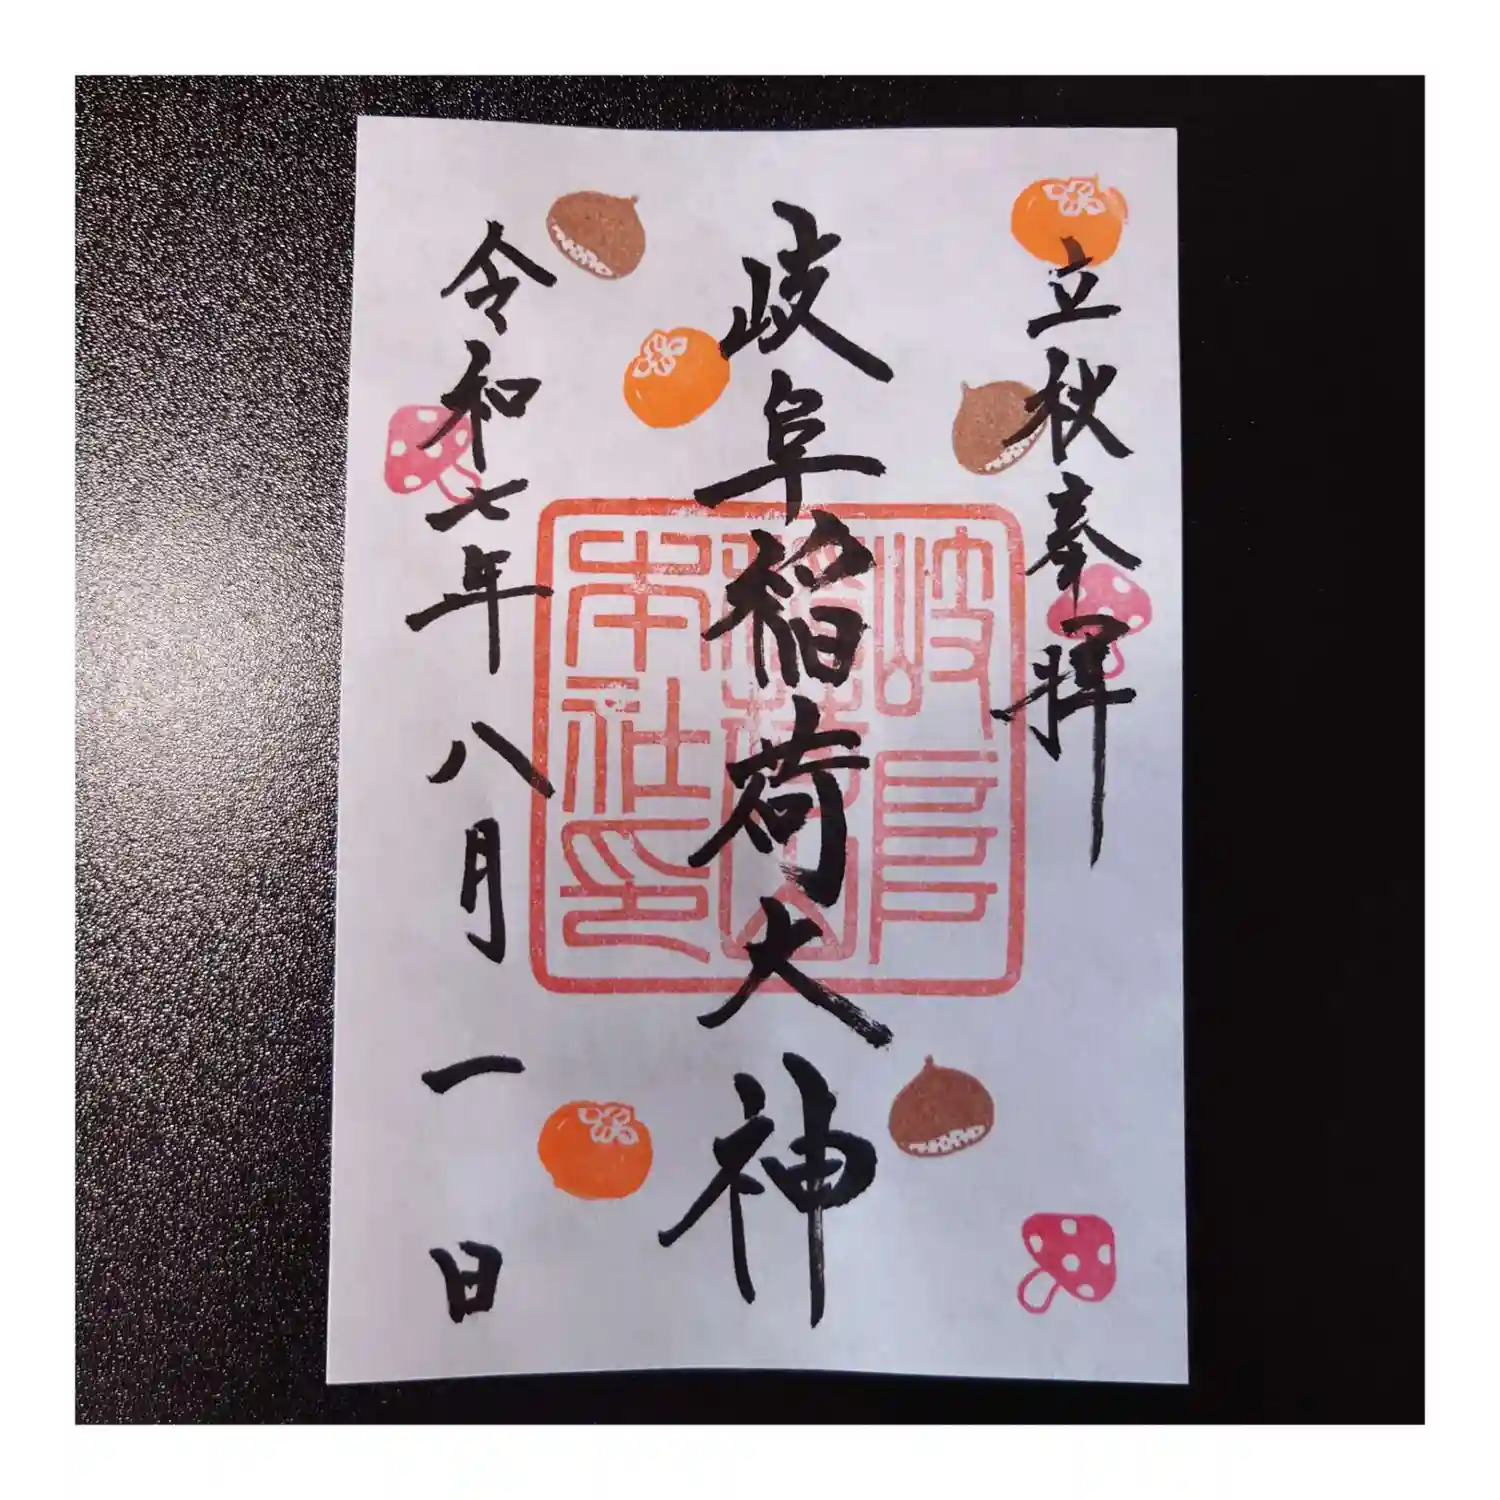 立秋奉拝
岐阜稲荷大神
令和七年八月一日
岐阜
稲荷山
本社印